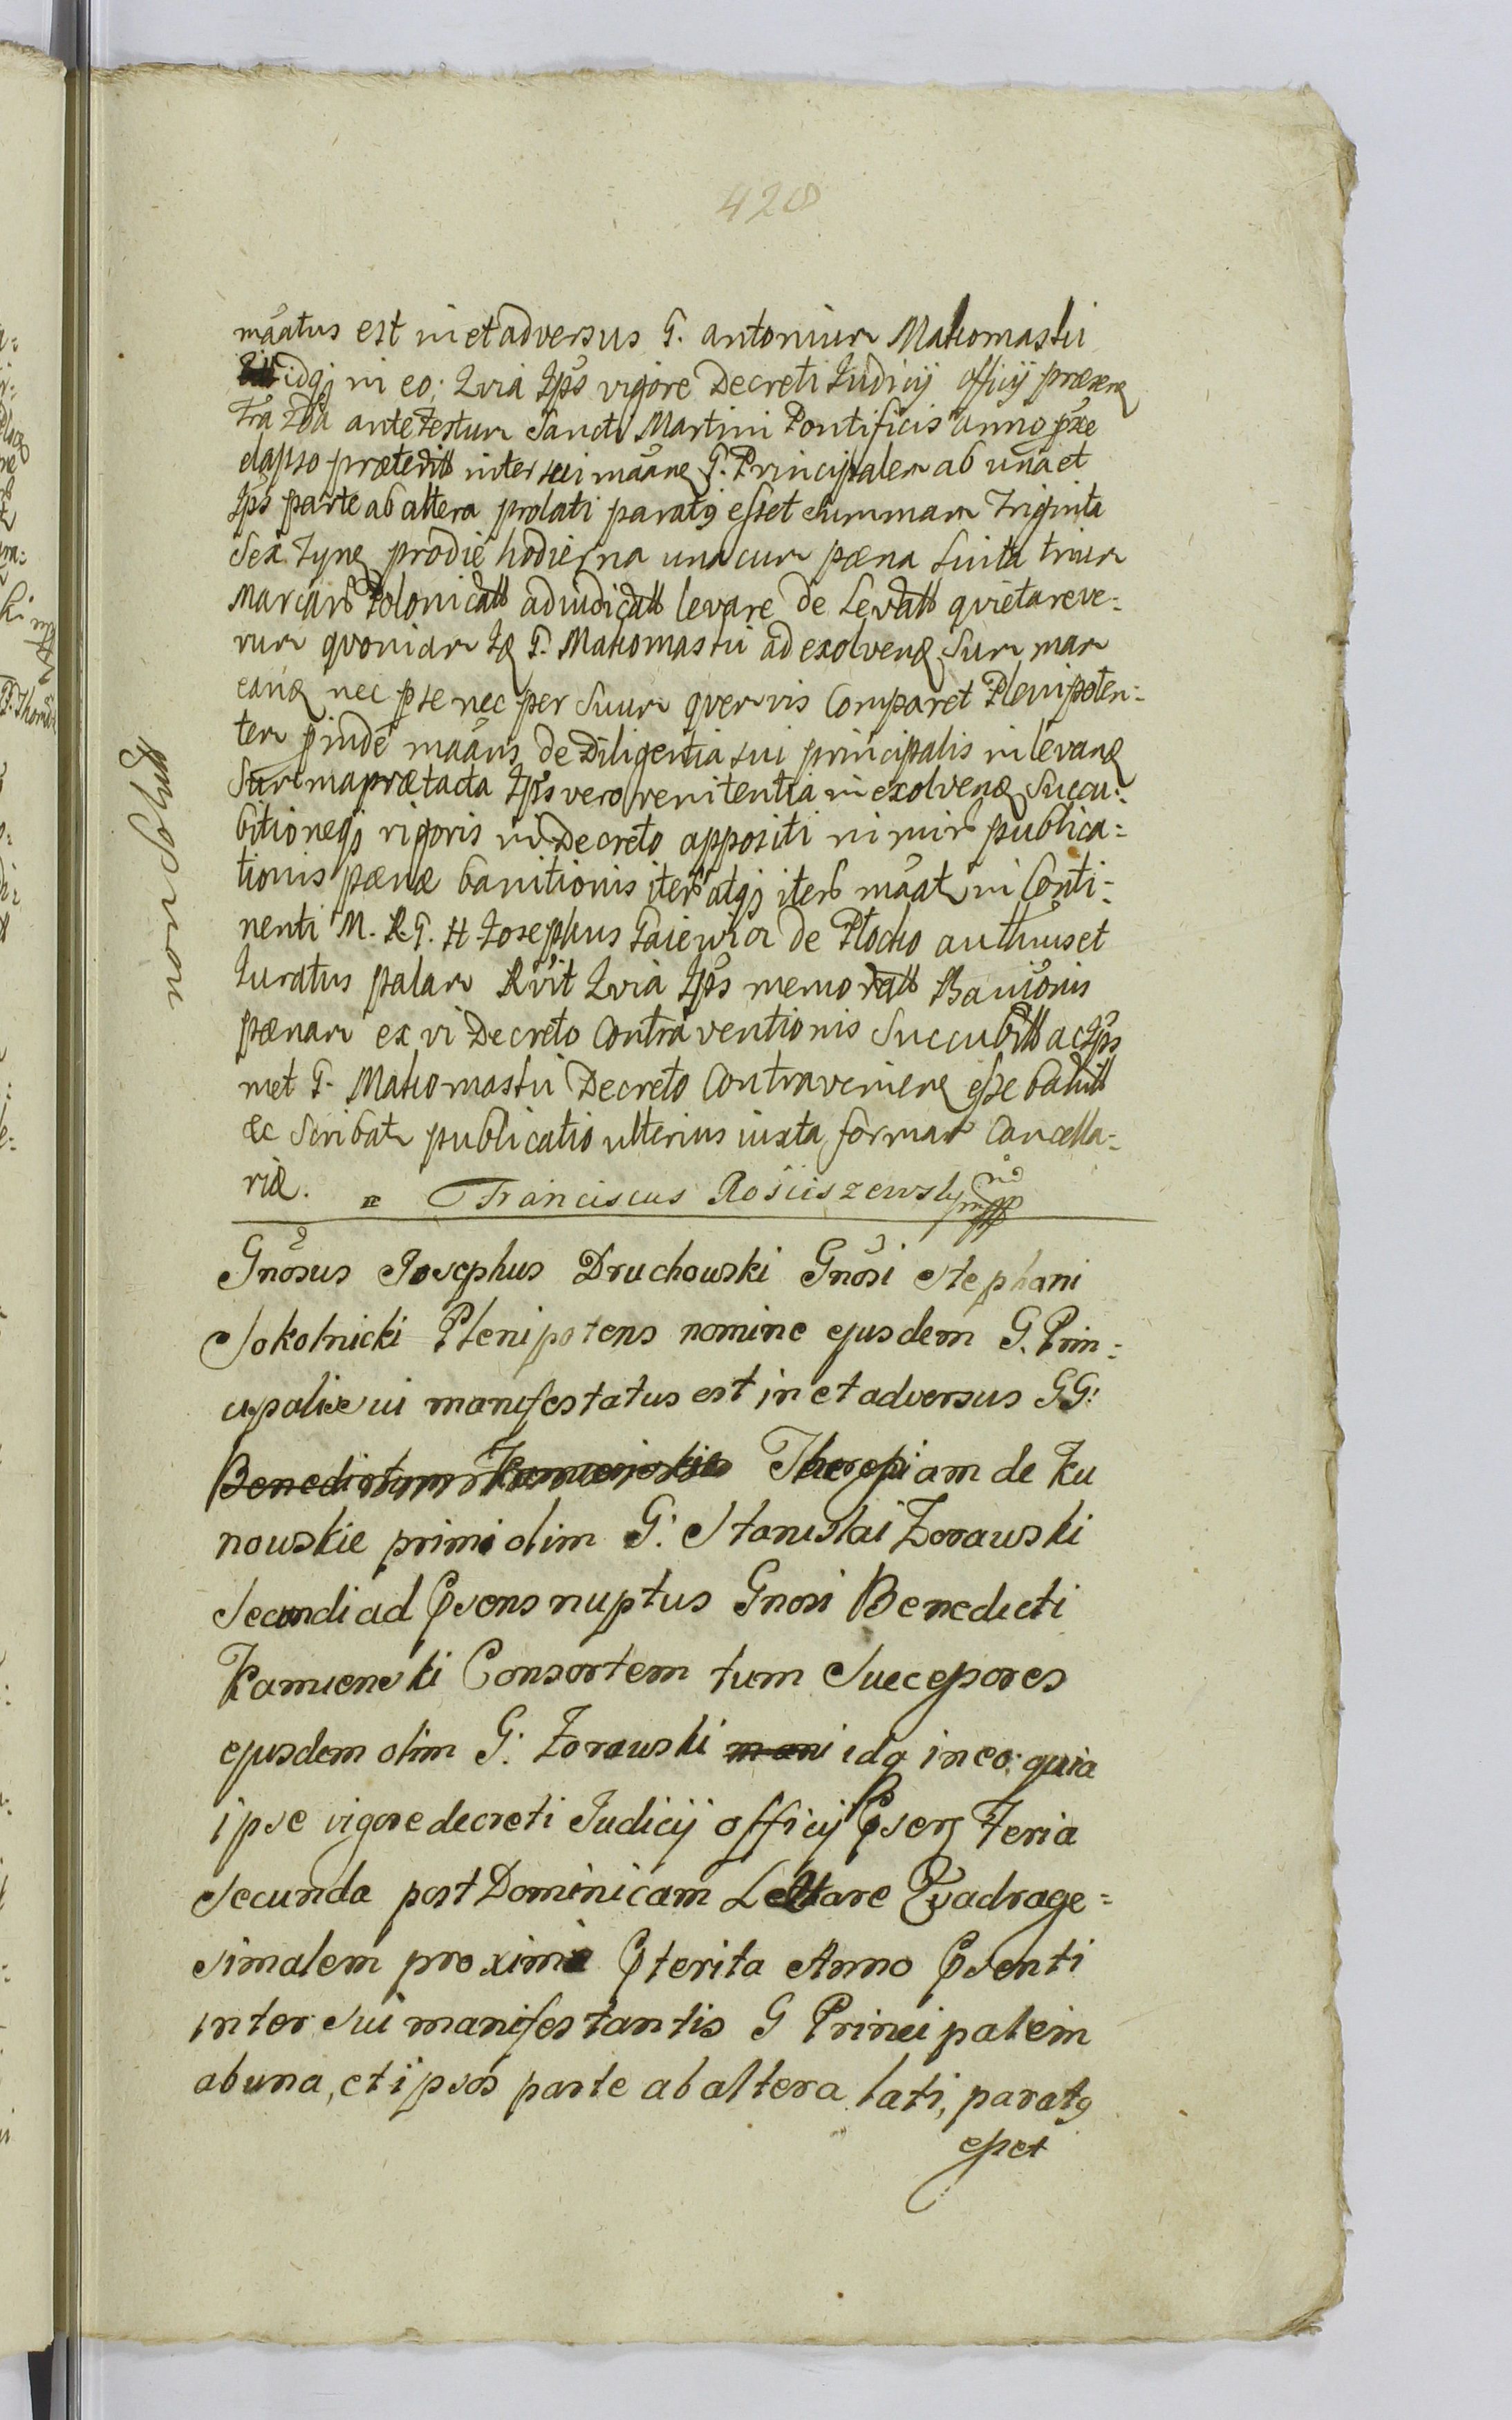 428
mãatus est in et adversus G. antonium Makomaski
idqz in eo; Qvia Ips vigore Decreti Iudicij officij præsenq
fra 2da ante festum Sancti Martini Pontificis anno pxe
elapso præterit inter sui mãane G. Principalem ab una et
Ips parte ab altera prolati paratq esset summam Triginta
Sex Tynq prodie hodierna una cum pæna Luita trium
Marcar Polonicall adiudicall levare de Levatt qvietareve:
rum qvoniam Iq G. Makomaski ad exolvenq Sum mam
eanq nec p se nec per Suum qvemvis Comparet Plenipoten:
tem pinde mãans de Diligentia sui principalis in levanq
Summa prætacta Ips vero renitentia in exolvenq Succu:
bitioneqz rigoris in Decreto appositi nimir publica:
tionis pænæ banitionis iter atqz iter mãat in Conti:
nenti M. R G. H Iosephus Gaiewicz de Plocko authus et
Iuratus palam Rvit Qvia Ips memoratt Banionis
pænam ex vi Decreto Contraventionis Succubitt ac Ips
met G. Makomaski Decreto Contravenienq esse banitt
&c Scribatr publicatio ulterius iuxta formam Cancella:
riæ. Franciscus Rościszewsky mpp
non Solut
Gnosus Josephus Druchowski Gnosi Stephani
Sokolnicki Plenipotens nomine ejusdem G. Prin:
cipalis sui manifestatus est in et adversus GG:
Benedictum Kamienskie Theresiam de Ku
nowskie primi olim G: Stanislai Zorawski
Secundi ad Psens nuptus Gnosi Benedicti
Kamienski Consortem tum Successores
ejusdem olim G: Zorawski mani idq in eo: quia
ipse vigore decreti Judicij officij Psenz Feria
Secunda post Dominicam Lettare Qvadrage:
simalem proxime Pterita Anno Psenti
inter sui manifestantis G Principalem
ab una, et ipsos parte ab altera lati, paratq
esset